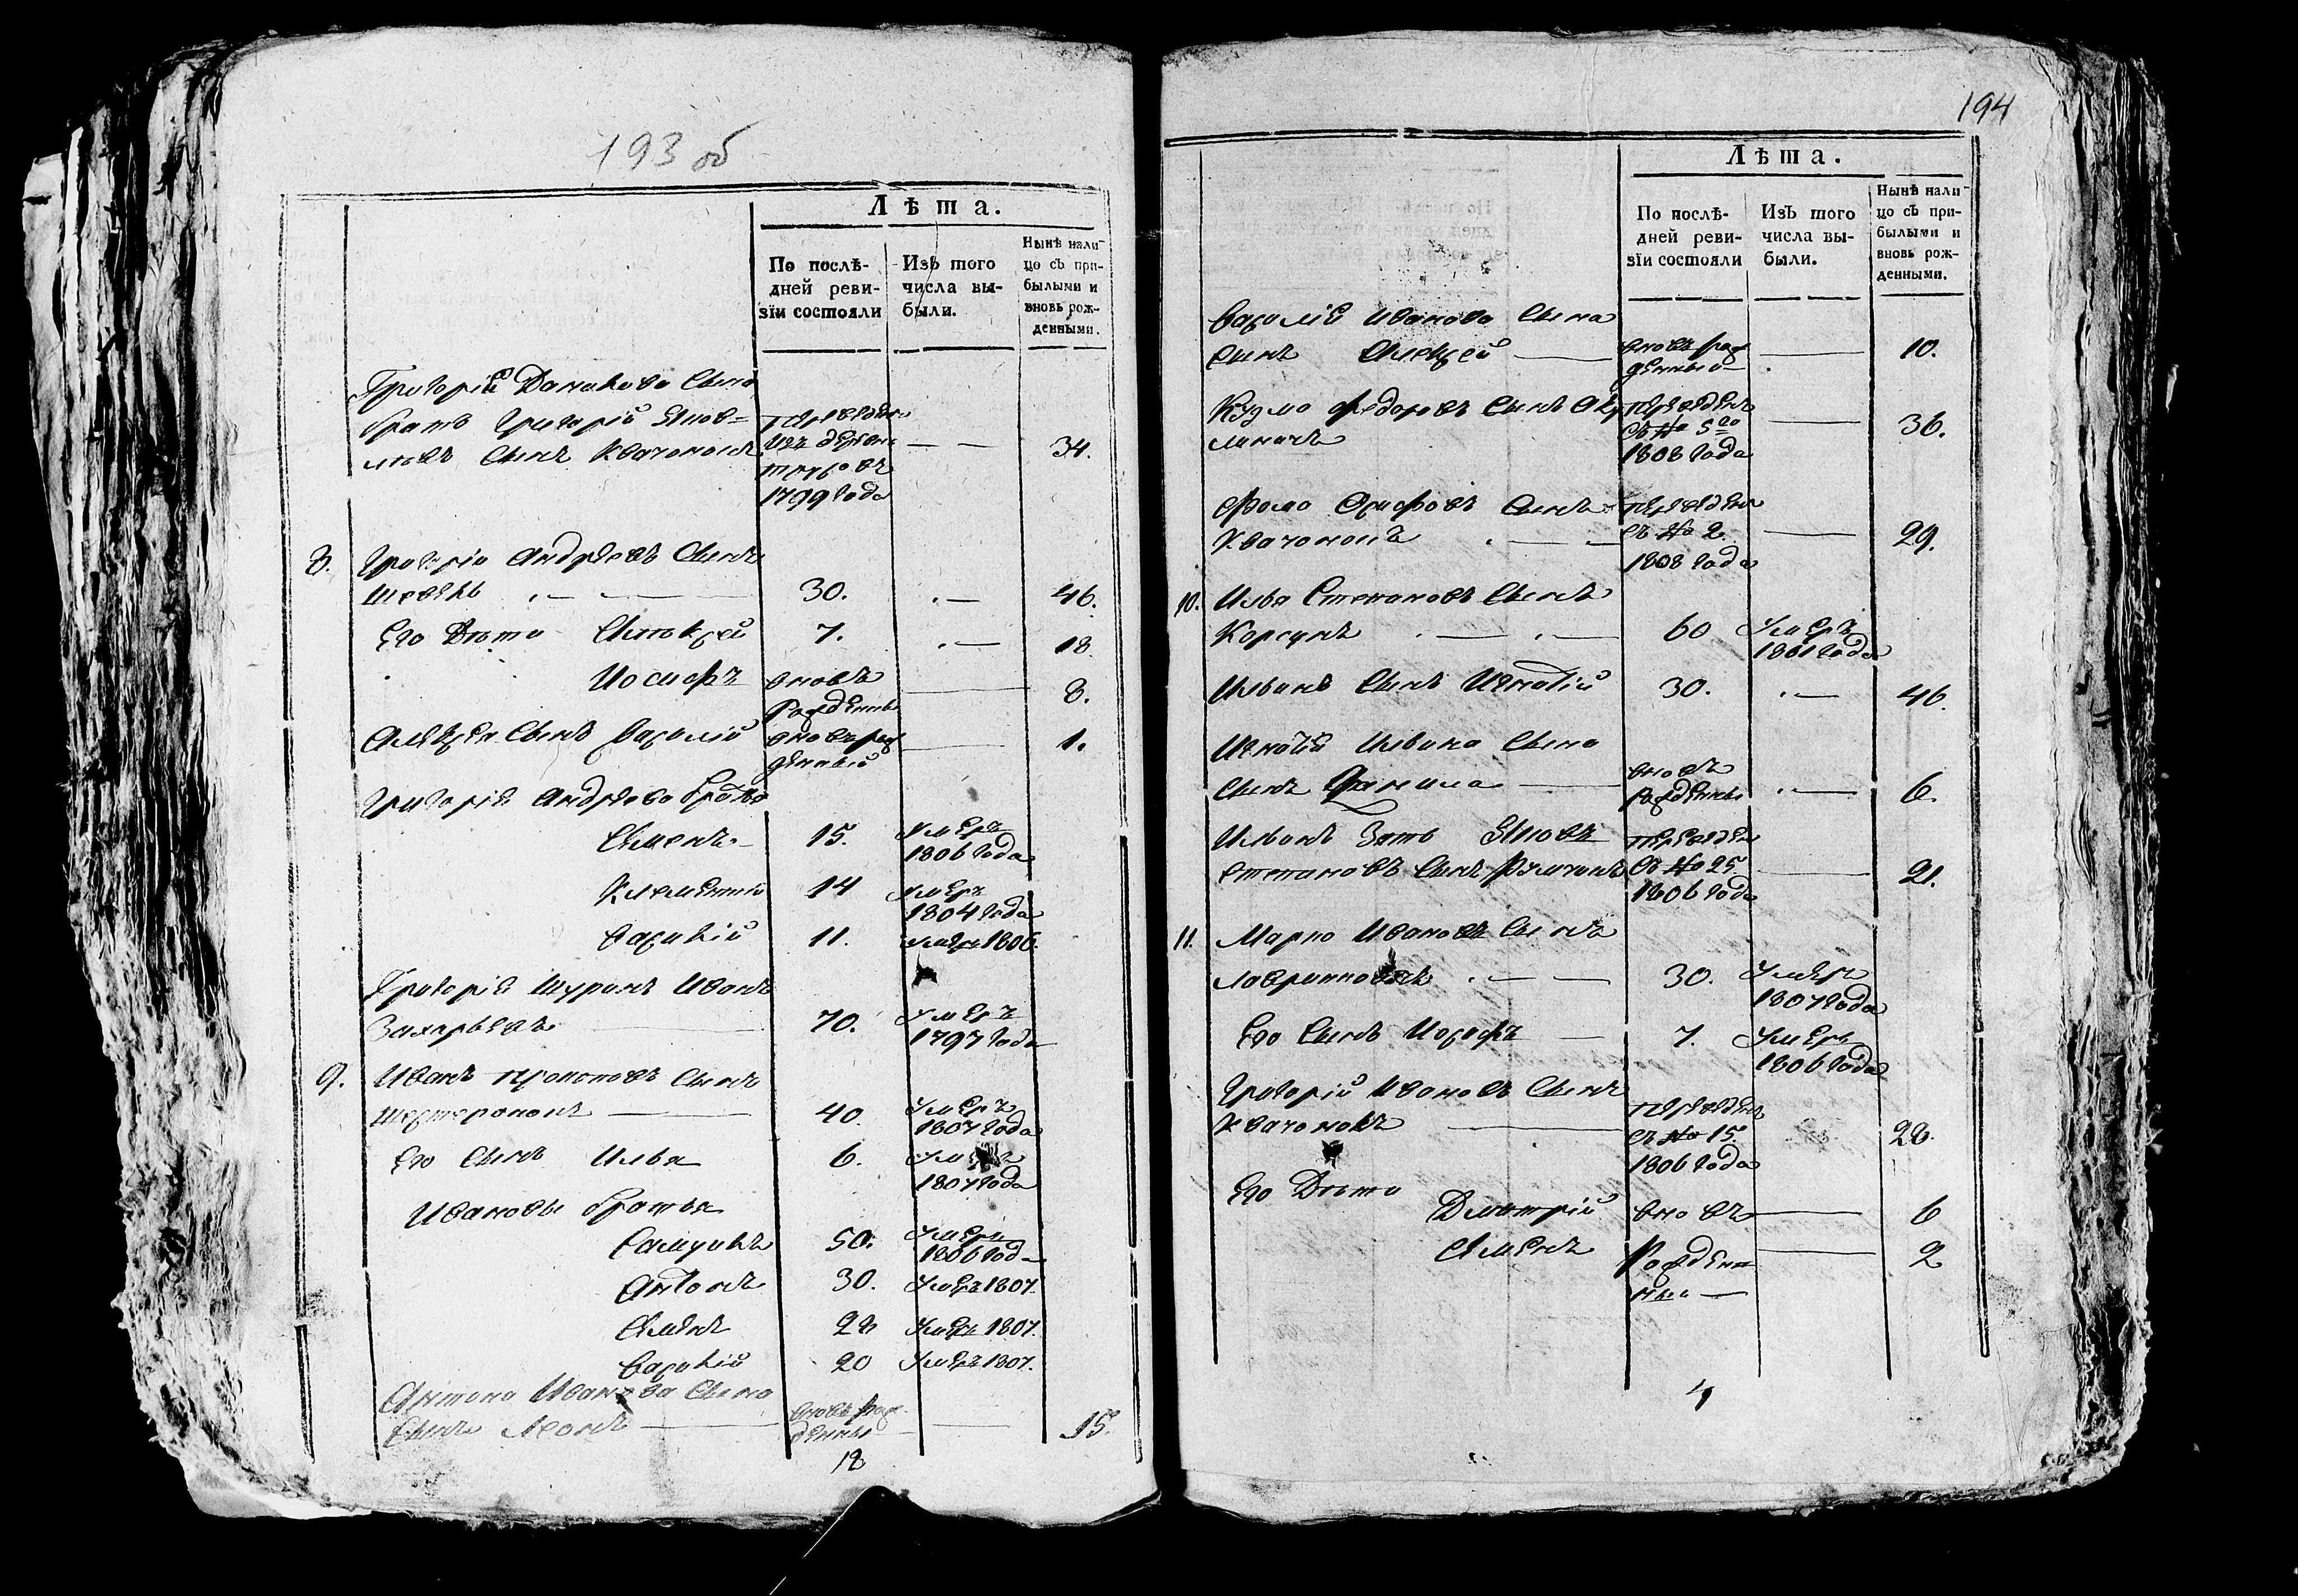 193 об
Лѣта.
По послѣ-
дней реви-
зїи состояли
Изъ того
числа вы-
были.
Нынѣ нали-
цо съ при-
былыми и
вновь рож-
денными.
Григорій Данилова Сына
братъ Григорій
сынъ Квачонокъ
переведенъ
изъ деревни
1799 года
34.
8. Григорій Андреевъ Сынъ
Шевень 30. 46.
Его Дѣти Алексей 7. 18
Иосифъ вновь
рожденный 8.
Алексея Сынъ Василій вновь рож
денный 1.
Григорія Андреева братья
Семенъ 15. умеръ
1806 года
Клементій 14 умеръ
1804 года
Василій 11. умеръ 1806.
Григорія Шуринъ Иванъ
Захарьевъ 70. умеръ
1797 года
9. Иванъ Прокоповъ Сынъ
40. умеръ
1807 года
Его Сынъ Илья 6. умеръ
1807 года
Ивановы братья
Самуилъ 50. умеръ
1806 год
Антонъ 30. умеръ 1807.
Семенъ 22 умеръ 1807.
Василій 20 умеръ 1807.
Антона Иванова Сына
Сынъ Леонъ вновь рож
денный 15.
12
194
Лѣта.
По послѣ-
дней реви-
зїи состояли
Изъ того
числа вы-
были.
Нынѣ нали-
цо съ при-
былыми и
вновь рож-
денными.
Василій Иванова Сына
сынъ Алексей вновь рож
денный 10.
Кузма Федоровъ Сынъ
переведенъ
съ № 5го
1808 года
36.
Фома Осиповъ Сынъ
Квачонокъ
переведенъ
съ № 2.
1808 года
29.
10. Илья Степановъ Сынъ
Корсунъ 60 умеръ
1801 года
Ильинъ Сынъ Игнатій 30. 46.
Игнатія Ильина Сына
Сынъ Данила вновь
рожденный 6.
Ильинъ Зять
Степановъ Сынъ
переведенъ
съ № 25
1806 года
21.
11. Марко Ивановъ Сынъ
Лавриновичъ 30. умеръ
1807 года
Его Сынъ Иосифъ 7. умеръ
1806 года
Григорій Ивановъ Сынъ
Квачонокъ
переведенъ
съ № 15
1806 года
28.
Его Дѣти
Дмитрій вновь 6
Семенъ рожден
ныи 2
4